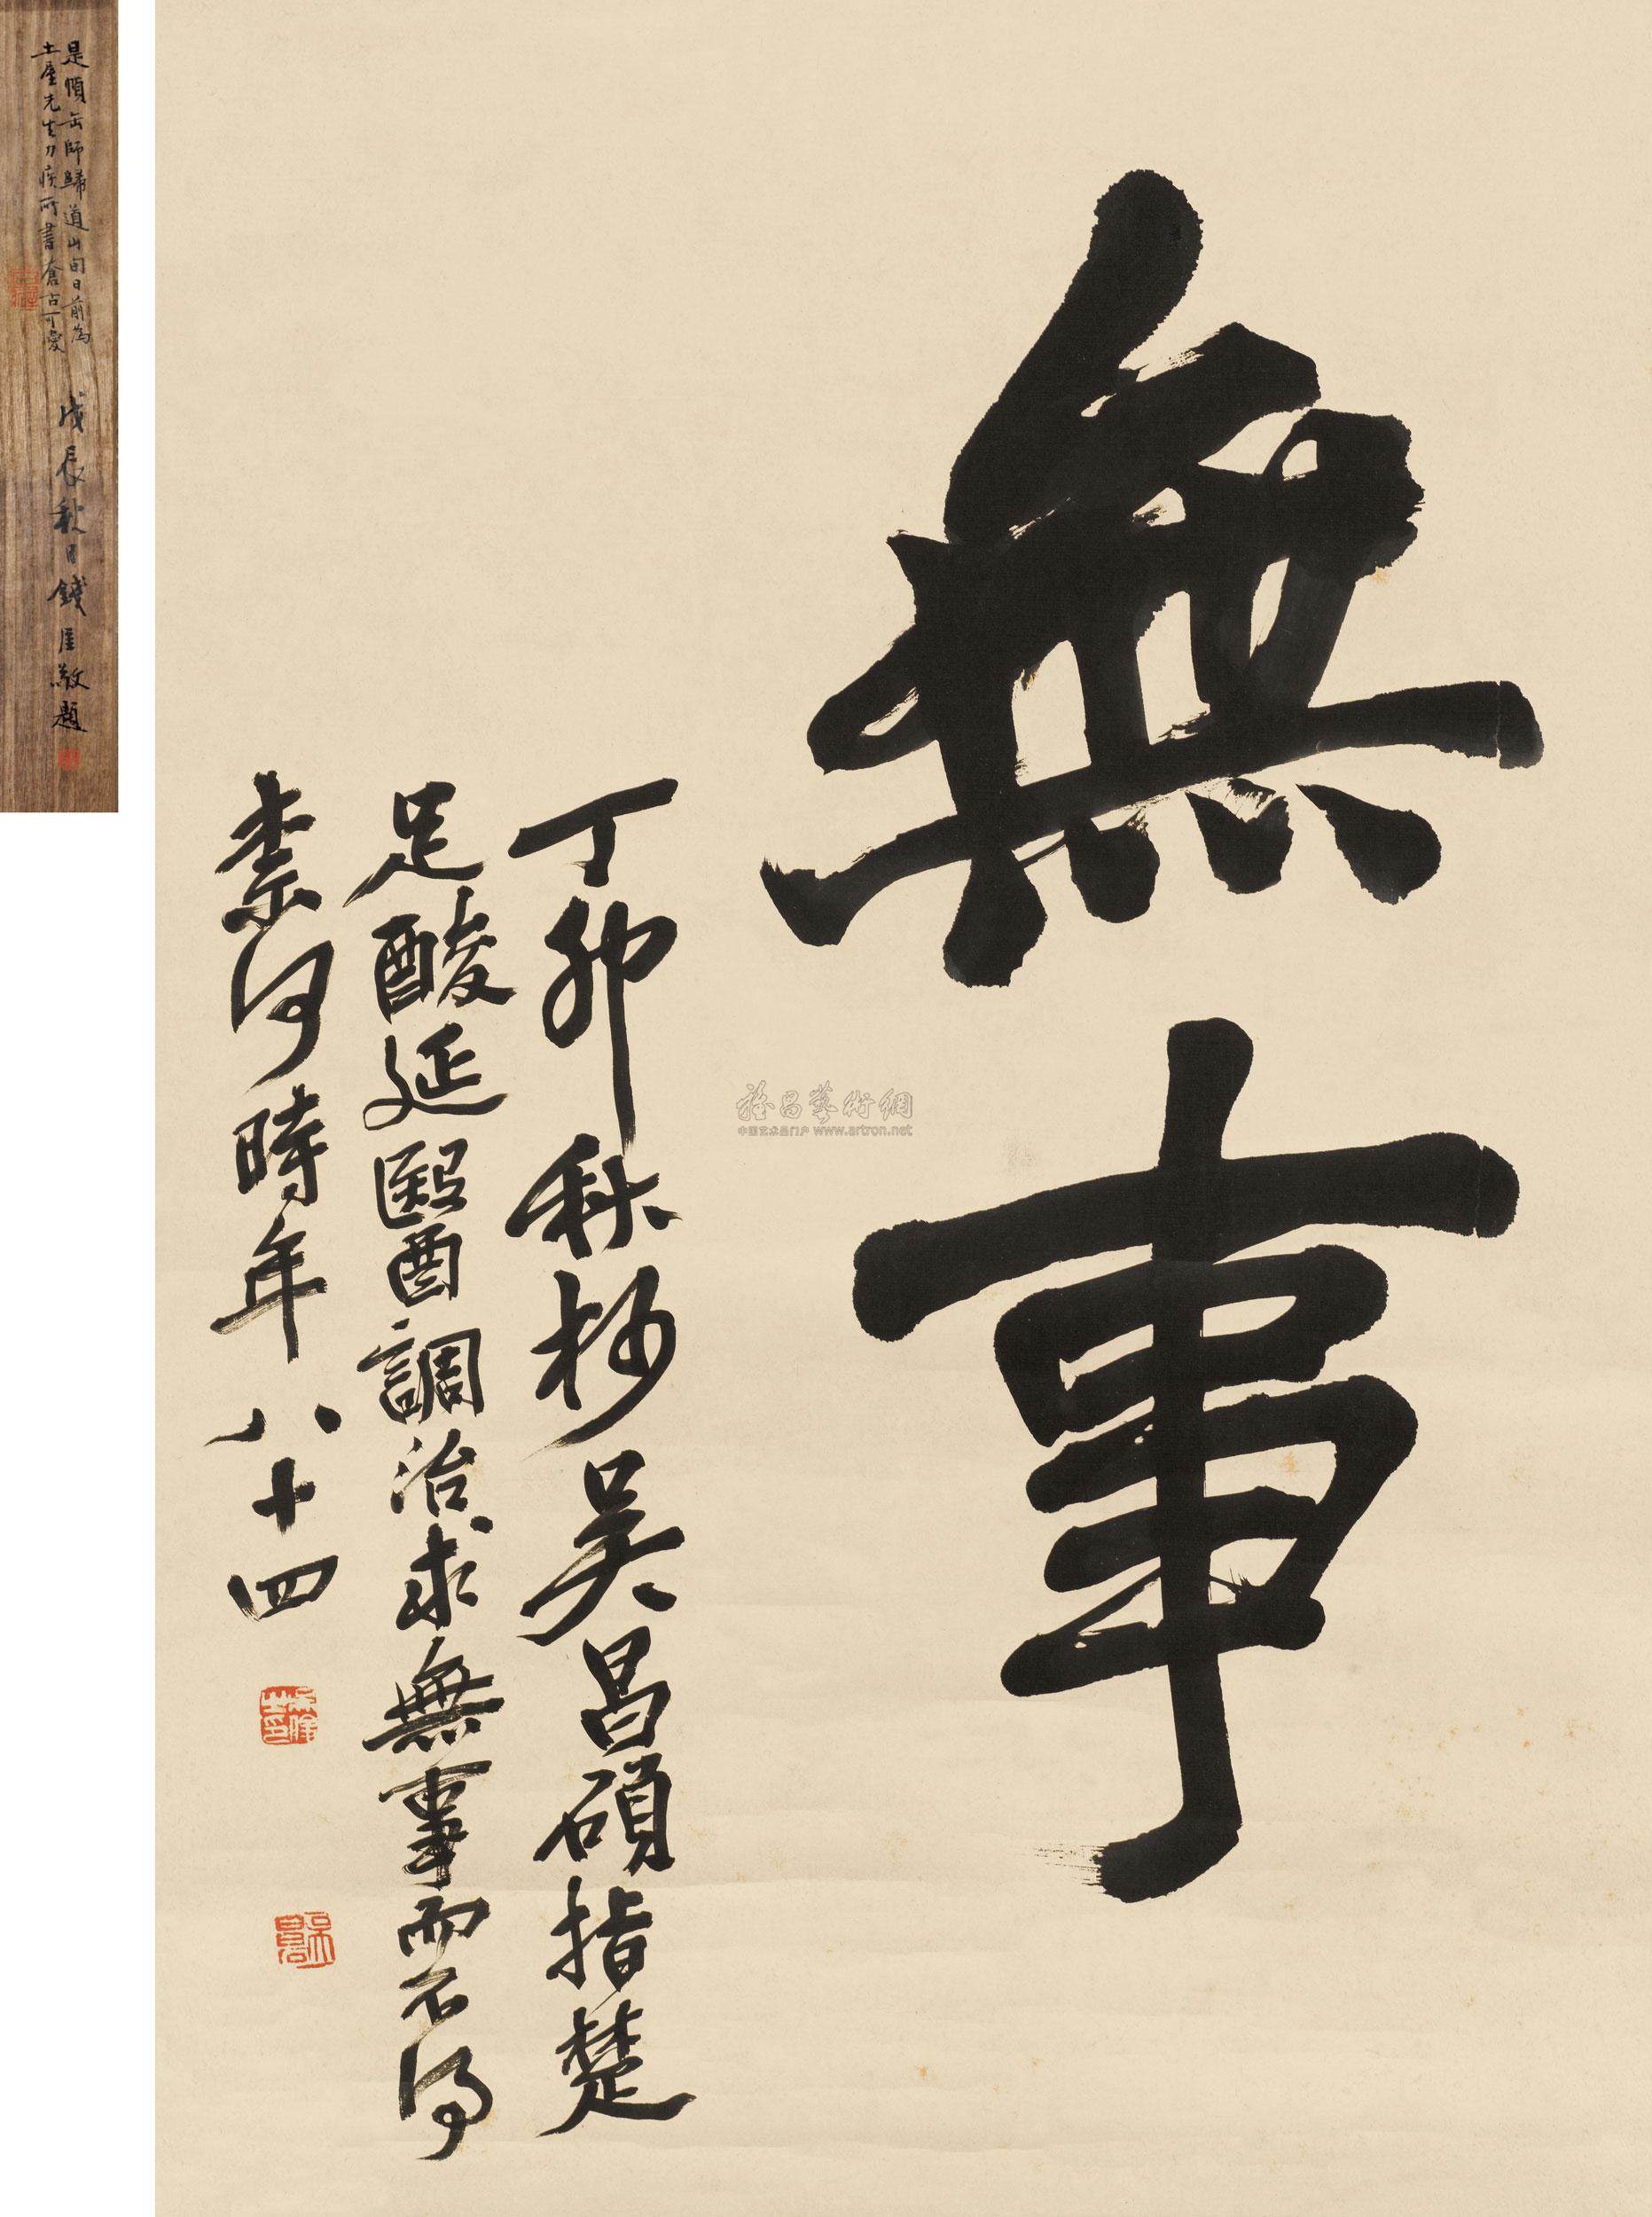 無事
丁卯秋杪吳昌碩指楚
足酸延醫調治求無事而不得
柰何時年八十四
是幀缶師歸道山旬日前為
土屋先生力疾所書蒼古可愛
戊辰秋日錢厓敬題
中国艺术品门户 www.artron.net